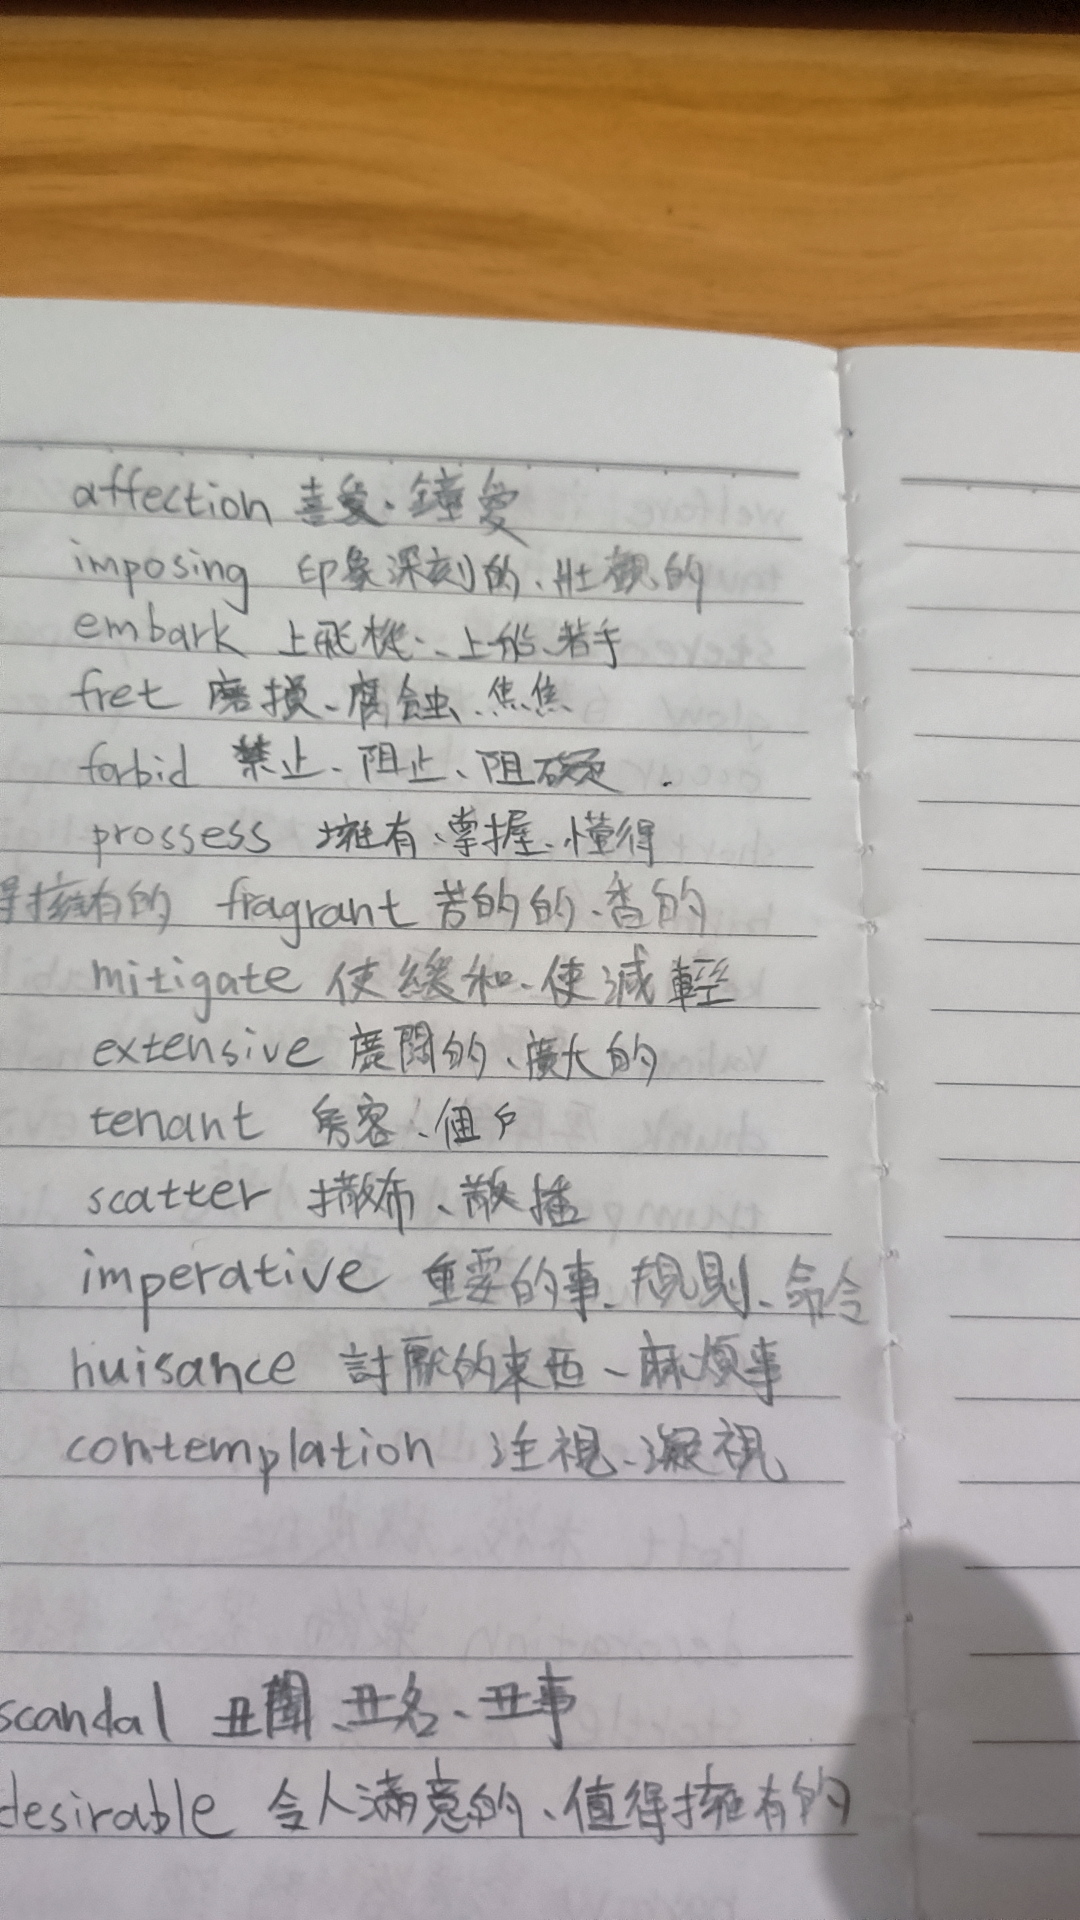 affection 喜愛、鐘愛
imposing 印象深刻的、壯觀的
embark 上飛機、上船、著手
fret 磨損、腐蝕、焦焦
forbid 禁止、阻止、阻礙
prossess 擁有、掌握、懂得
得擁有的 fragrant 芳的的、香的
mitigate 使緩和、使減輕
extensive 廣闊的、廣大的
tenant 房客、佃戶
scatter 撒布、散播
imperative 重要的事、規則、命令
nuisance 討厭的東西、麻煩事
contemplation 注視、凝視
scandal 丑聞、丑名、丑事
desirable 令人滿意的、值得擁有的